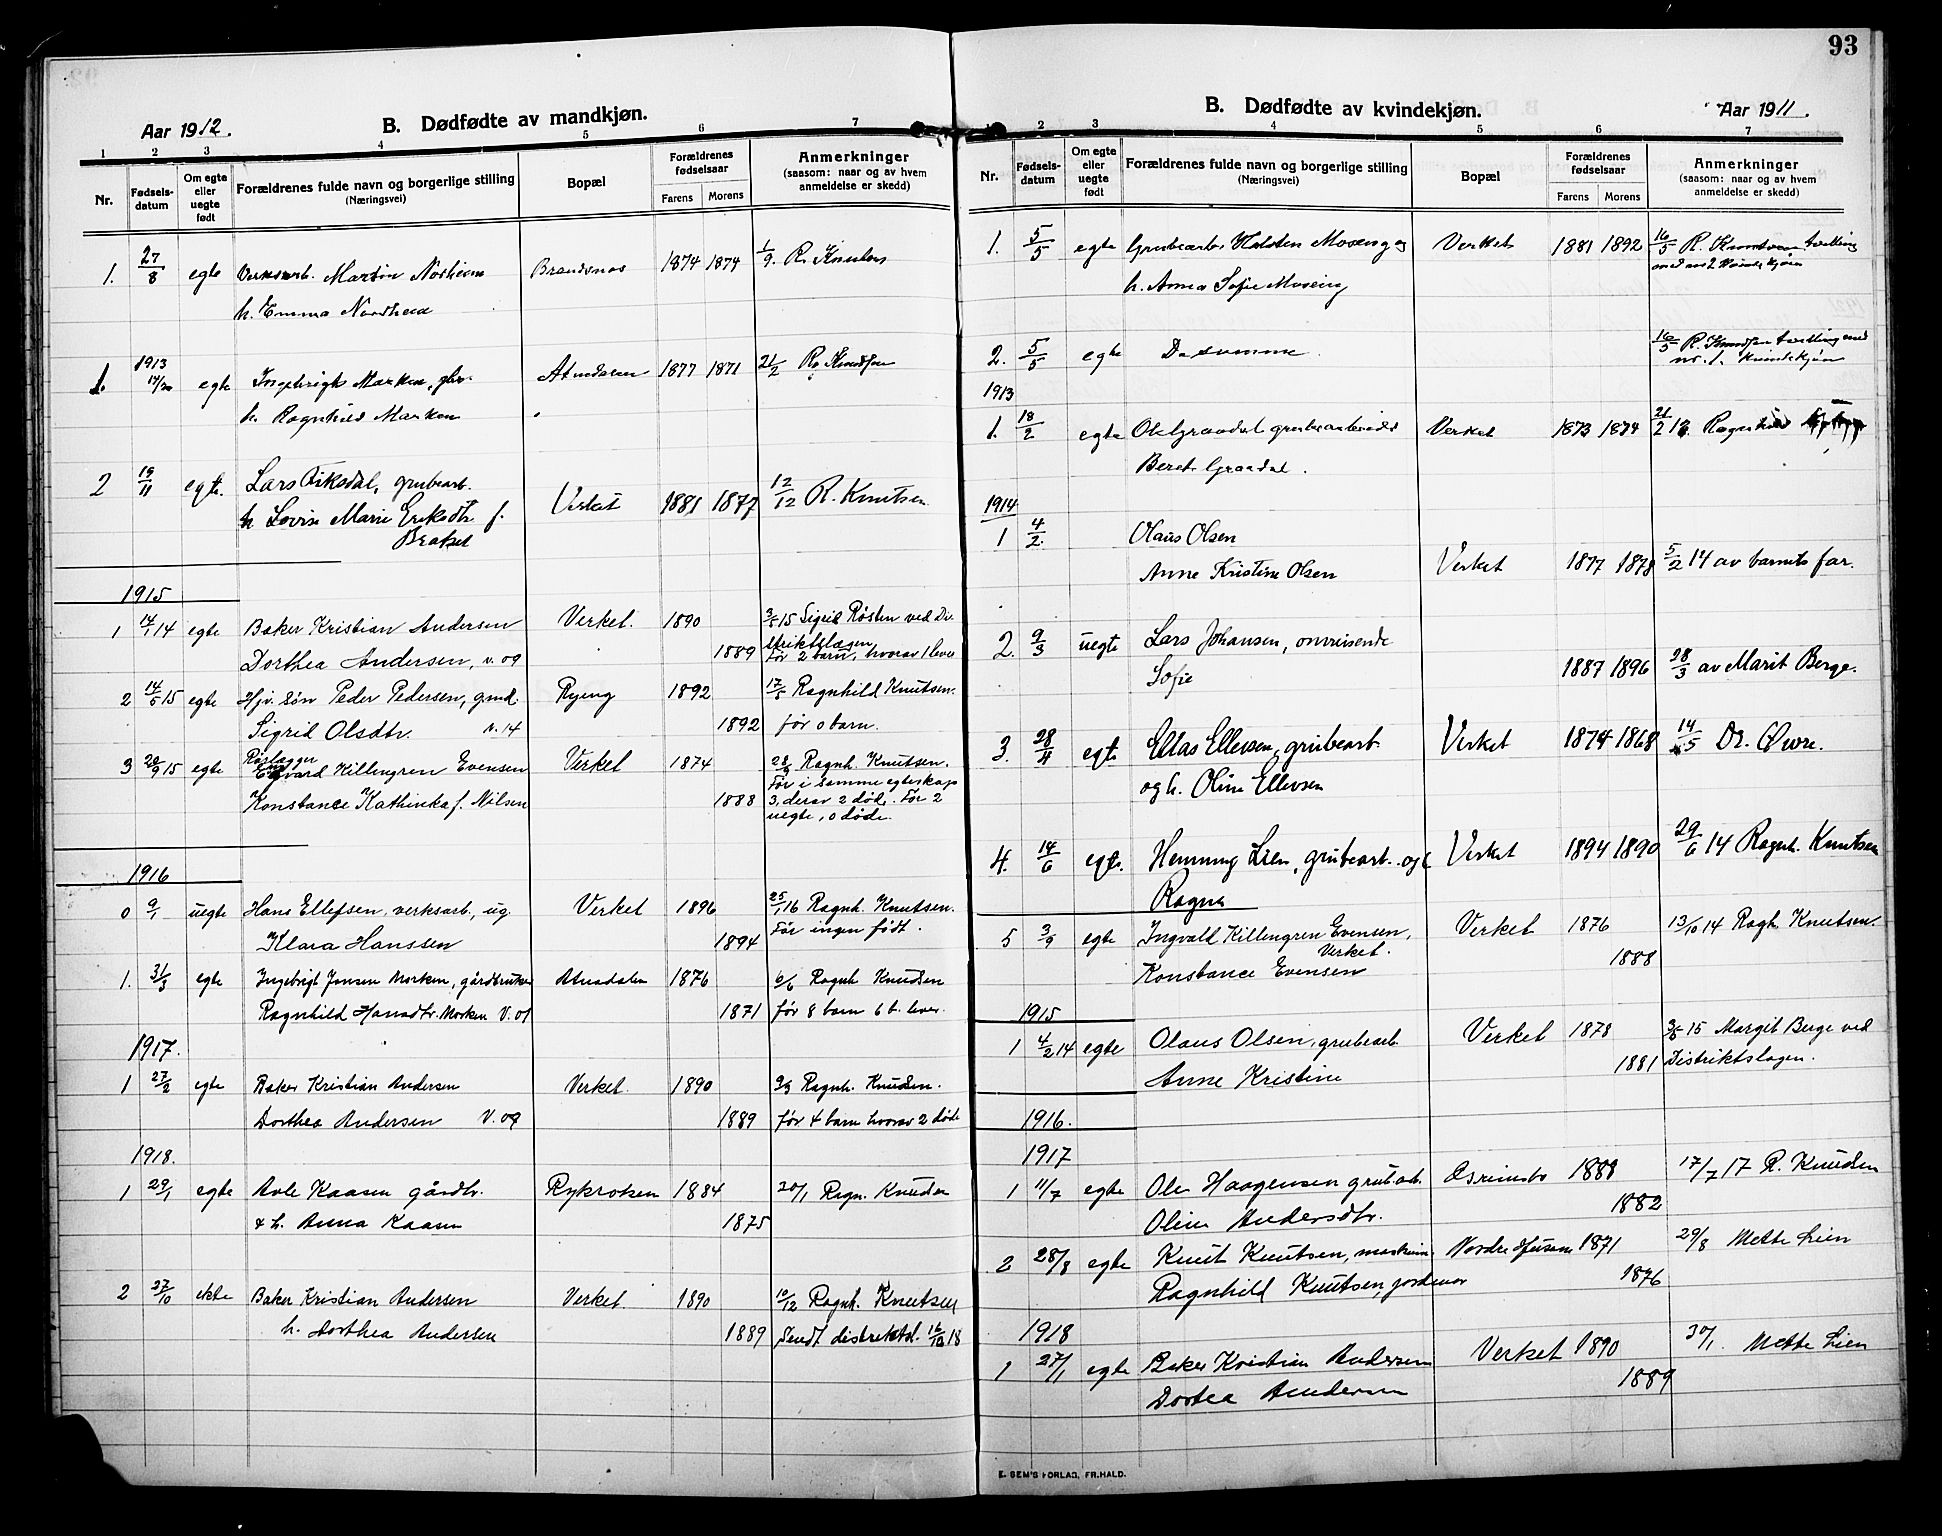 93
Aar 1912.
B. Dødfødte av mandkjøn.
1 2 3 4 5 6 7
Nr.
Fødsels-
datum
Om egte
eller
uegte
født
Forældrenes fulde navn og borgerlige stilling
(Næringsvei)
Bopæl
Forældrenes
fødselsaar
Farens Morens
Anmerkninger
(saasom: naar og av hvem
anmeldelse er skedd)
1. 27/8 egte Martin 1874 1874 1/9. R. Knutsen
h. Emma Nordheim
1913
1. egte Marken, 1877 1871 21/2
h. Ragnhild Marken
2 egte. Lars grubearb. Verket 1881 1877 12/12 R. Knutsen
h Lovise Marie Eriksdtr f.
1915
1 14/1 14 egte Baker Kristian Andersen Verket. 1890 3/5 15 Sigrid Røsten ved Di
striktslægen
Dorthea Andersen, v. 09 1889 Før 2 barn, hvorav 1 lever
2 14/5 15 egte Hjv. søn Peder Pedersen, gmd. Ryeng 1892 17/5 Ragnhild Knutsen.
Sigrid Olsdtr. v. 14 1892 før 0 barn.
Rørlægger
3 28/9 15 egte Killengren Evensen Verket 1874 28/9 Ragnh. Knutsen.
Før i samme egteskap
Konstance Kathinka f. Nilsen 1888 3, derav 2 døde. Før 2
uegte, 0 døde.
1916
0 9/1 uegte Hans Ellefsen, verksarb., ug. Verket 1896 25/1 16 Ragnh. Knutsen.
Før ingen født.
Klara Hanssen 1894
1. 31/3 egte Ingebrigt Jonsen Morken, gårdbruker Atnadalen 1876 6/6 Ragnh Knudsen
Ragnhild Hansdtr. Morken V. 01 1871 før 8 barn 6 b. lever.
1917.
1 27/2 egte Baker Kristian Andersen Verket. 1890 Ragnh. Knudsen.
Dorthea Andersen V. 09 1889 før 4 barn hvorav 2 døde
1918.
1 29/1 egte Kaasen gårdbr. Rykroken 1884 Ragn. Knudsen
& h. Anna Kaasen 1875
2 27/10 ekte Baker Kristian Andersen Verket 1890 10/12 Ragnh. Knutsen
h. Dorthea Andersen 1889 Sendt
B. Dødfødte av kvindekjøn.
Aar 1911.
1 2 3 4 5 6 7
Nr.
Fødsels-
datum
Om egte
eller
uegte
født
Forældrenes fulde navn og borgerlige stilling
(Næringsvei)
Bopæl
Forældrenes
fødselsaar
Farens Morens
Anmerkninger
(saasom: naar og av hvem
anmeldelse er skedd)
1. 5/5 egte Grubearb. Halsten Moseng og Verket 1881 1892 16/5 R. Knutsen tvilling
med nr 2 kvindekjøn
h. Anna Sofie Moseng
2. 5/5 egte Desamme. 16/5 R. Knudsen tvilling med
nr. 1. kvindekjøn
1913
1. 18/2 egte grubearbeider Verket 1873 1874 Ragnhild
Beret Graadal.
1914
1 4/2. Olaus Olsen
Anne Kristine Olsen Verket 1877 1878 5/2 14 av barnets far.
2. 9/3 uegte Lars Johansen, omreisende
Sofie 1887 1896 28/3 av Marit Berge.
3. 28/4 egte Elias Ellevsen, grubearb. Verket 1874 1868 14/5 Dr. Øvre.
og h. Oline Ellevsen
4. 14/6 egte. Henning Lien, grubearb. og Verket 1894 1890 29/6 14 Ragnh. Knutsen
Ragna
5 3/9 egte Ingvald Killengren Evensen, Verket 1876 13/10 14 Ragh. Knutsen.
Verket.
Konstance Evensen 1888
1915
1 4/2 14 egte Olaus Olsen, grubearb Verket 1878 3/5 15 Margit Berge ved
Distriktslægen.
Anne Kristine 1881
1916.
1917
1 11/7 egte Ole Haagensen grubearb 1888 17/7 17 R. Knudsen
Oline Andersdtr. 1882
2 28/8 egte Knut Knutsen, maskin. 1871 29/8 Mette Lien
Ragnhild Knutsen, jordmor 1876
1918
1 27/1 egte Baker Kristian Andersen Verket 1890 30/1. Mette Lien
Dortea Andersen 1889
E. SEM'S FORLAG, FR.HALD.